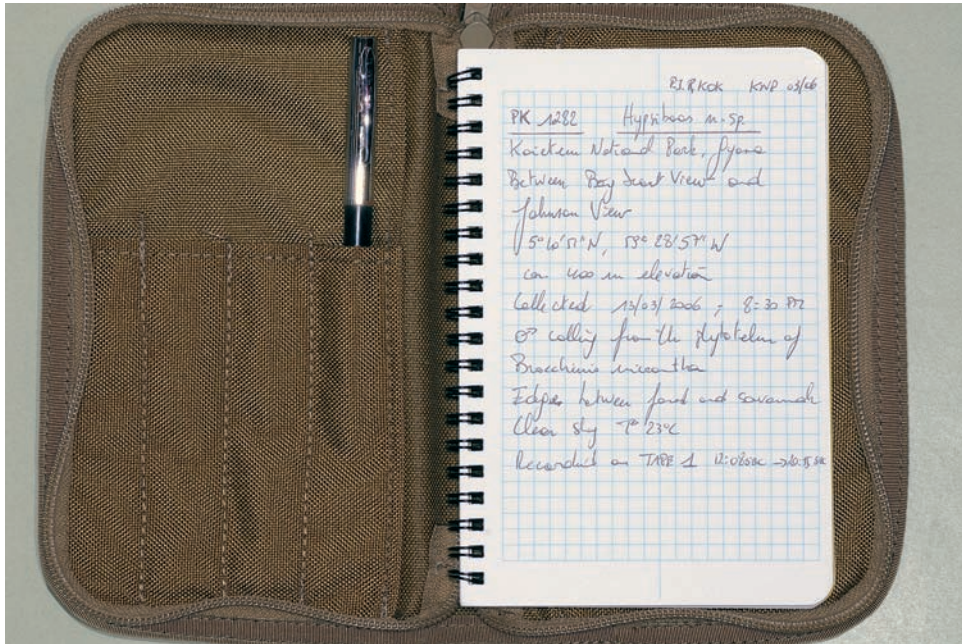 P.J.R. KOK KNP 03/06
PK 1282 Hypsiboas n. sp.
Kaieteur National Park, Guyana
Between Boy Scout View and
Johnson View
5° 10' N, 59° 28' 57" W
400 m elevation
Collected 13/03/2006, 8:30 PM
♂ calling from the phytotelm of
Brocchinia micrantha
Edges between forest and savannah
Clear sky T° 23°C
Recorded on TAPE 1